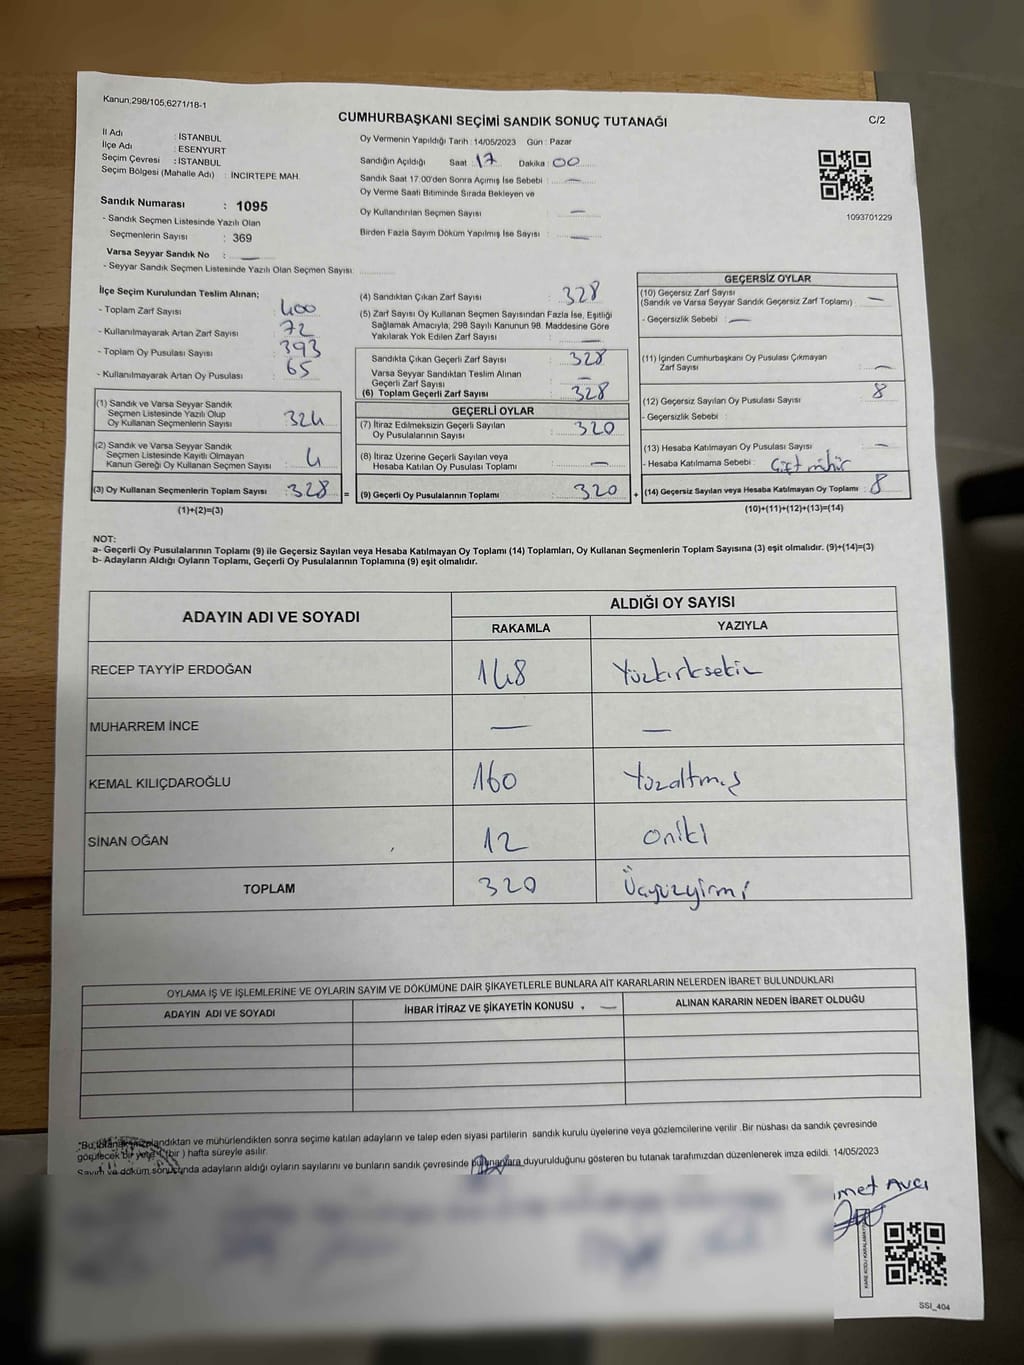 Kanun,298/105,6271/18-1
CUMHURBAŞKANI SEÇİMİ SANDIK SONUÇ TUTANAĞI
C/2
İl Adı : İSTANBUL
İlçe Adı : ESENYURT
Seçim Çevresi : İSTANBUL
Seçim Bölgesi (Mahalle Adı) : İNCİRTEPE MAH.
Oy Vermenin Yapıldığı Tarih : 14/05/2023 Gün : Pazar
Sandığın Açıldığı Saat : 17 Dakika : 00
Sandık Saat 17:00'den Sonra Açımış İse Sebebi : —
Oy Verme Saati Bitiminde Sırada Bekleyen ve
Oy Kullandırılan Seçmen Sayısı : —
Birden Fazla Sayım Döküm Yapılmış İse Sayısı : —
1093701229
Sandık Numarası : 1095
- Sandık Seçmen Listesinde Yazılı Olan
Seçmenlerin Sayısı : 369
Varsa Seyyar Sandık No : —
- Seyyar Sandık Seçmen Listesinde Yazılı Olan Seçmen Sayısı:
İlçe Seçim Kurulundan Teslim Alınan;
- Toplam Zarf Sayısı : 400
- Kullanılmayarak Artan Zarf Sayısı : 72
- Toplam Oy Pusulası Sayısı : 393
- Kullanılmayarak Artan Oy Pusulası : 65
(1) Sandık ve Varsa Seyyar Sandık
Seçmen Listesinde Yazılı Olup
Oy Kullanan Seçmenlerin Sayısı : 324
(2) Sandık ve Varsa Seyyar Sandık
Seçmen Listesinde Kayıtlı Olmayan
Kanun Gereği Oy Kullanan Seçmen Sayısı : 4
(3) Oy Kullanan Seçmenlerin Toplam Sayısı : 328 =
(1)+(2)=(3)
(4) Sandıktan Çıkan Zarf Sayısı : 328
(5) Zarf Sayısı Oy Kullanan Seçmen Sayısından Fazla İse, Eşitliği
Sağlamak Amacıyla; 298 Sayılı Kanunun 98. Maddesine Göre
Yakılarak Yok Edilen Zarf Sayısı : —
Sandıkta Çıkan Geçerli Zarf Sayısı : 328
Varsa Seyyar Sandıktan Teslim Alınan
Geçerli Zarf Sayısı : —
(6) Toplam Geçerli Zarf Sayısı : 328
GEÇERLİ OYLAR
(7) İtiraz Edilmeksizin Geçerli Sayılan
Oy Pusulalarının Sayısı : 320
(8) İtiraz Üzerine Geçerli Sayılan veya
Hesaba Katılan Oy Pusulası Toplamı : —
(9) Geçerli Oy Pusulalarının Toplamı : 320 +
GEÇERSİZ OYLAR
(10) Geçersiz Zarf Sayısı
(Sandık ve Varsa Seyyar Sandık Geçersiz Zarf Toplamı) : —
- Geçersizlik Sebebi : —
(11) İçinden Cumhurbaşkanı Oy Pusulası Çıkmayan
Zarf Sayısı : —
(12) Geçersiz Sayılan Oy Pusulası Sayısı : 8
- Geçersizlik Sebebi :
(13) Hesaba Katılmayan Oy Pusulası Sayısı : —
- Hesaba Katılmama Sebebi : Çift mühür
(14) Geçersiz Sayılan veya Hesaba Katılmayan Oy Toplamı : 8
(10)+(11)+(12)+(13)=(14)
NOT:
a- Geçerli Oy Pusulalarının Toplamı (9) ile Geçersiz Sayılan veya Hesaba Katılmayan Oy Toplamı (14) Toplamları, Oy Kullanan Seçmenlerin Toplam Sayısına (3) eşit olmalıdır. (9)+(14)=(3)
b- Adayların Aldığı Oyların Toplamı, Geçerli Oy Pusulalarının Toplamına (9) eşit olmalıdır.
ADAYIN ADI VE SOYADI
ALDIĞI OY SAYISI
RAKAMLA YAZIYLA
RECEP TAYYİP ERDOĞAN 148 Yüzkırksekiz
MUHARREM İNCE — —
KEMAL KILIÇDAROĞLU 160 Yüzaltmış
SİNAN OĞAN 12 oniki
TOPLAM 320 Üçyüzyirmi
OYLAMA İŞ VE İŞLEMLERİNE VE OYLARIN SAYIM VE DÖKÜMÜNE DAİR ŞİKAYETLERLE BUNLARA AİT KARARLARIN NELERDEN İBARET BULUNDUKLARI
ADAYIN ADI VE SOYADI İHBAR İTİRAZ VE ŞİKAYETİN KONUSU — ALINAN KARARIN NEDEN İBARET OLDUĞU
landıktan ve mühürlendikten sonra seçime katılan adayların ve talep eden siyasi partilerin sandık kurulu üyelerine veya gözlemcilerine verilir .Bir nüshası da sandık çevresinde
görülecek bir yere 1 (bir ) hafta süreyle asılır.
Sayım ve döküm sonucunda adayların aldığı oyların sayılarını ve bunların sandık çevresinde bulunanlara duyurulduğunu gösteren bu tutanak tarafımızdan düzenlenerek imza edildi. 14/05/2023
met Avcı
SSI_404